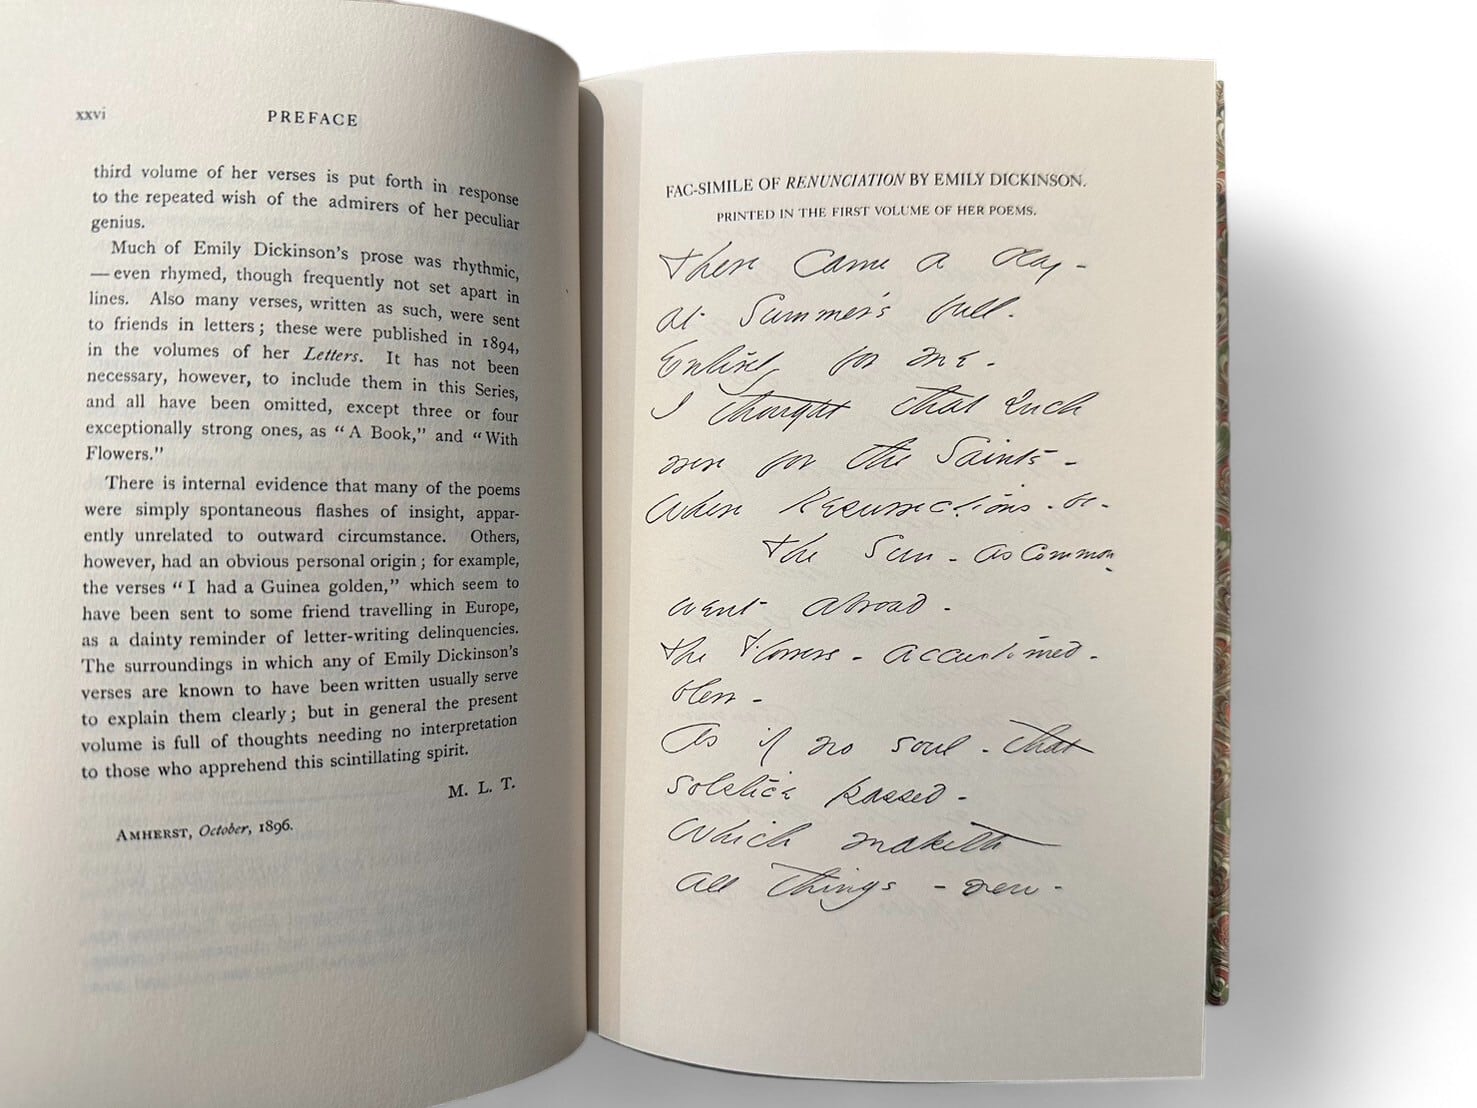 xxvi
PREFACE
third volume of her verses is put forth in response
to the repeated wish of the admirers of her peculiar
genius.
Much of Emily Dickinson's prose was rhythmic,
—even rhymed, though frequently not set apart in
lines. Also many verses, written as such, were sent
to friends in letters; these were published in 1894,
in the volumes of her Letters. It has not been
necessary, however, to include them in this Series,
and all have been omitted, except three or four
exceptionally strong ones, as "A Book," and "With
Flowers."
There is internal evidence that many of the poems
were simply spontaneous flashes of insight, appar-
ently unrelated to outward circumstance. Others,
however, had an obvious personal origin; for example,
the verses "I had a Guinea golden," which seem to
have been sent to some friend travelling in Europe,
as a dainty reminder of letter-writing delinquencies.
The surroundings in which any of Emily Dickinson's
verses are known to have been written usually serve
to explain them clearly; but in general the present
volume is full of thoughts needing no interpretation
to those who apprehend this scintillating spirit.
M. L. T.
AMHERST, October, 1896.
FAC-SIMILE OF RENUNCIATION BY EMILY DICKINSON.
PRINTED IN THE FIRST VOLUME OF HER POEMS.
There came a day -
at Summer's full.
Entirely for me -
I thought that such
were for the Saints -
Where Resurrections - be -
The Sun - as common
went abroad -
The Flowers - accustomed -
blew -
As if no soul - that
solstice passed -
Which maketh
all things - new -